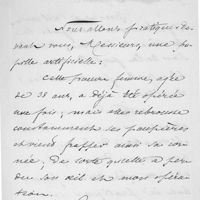 Nous allons pratiquer de-
vant vous, Messieurs, une pu-
pille artificielle:
Cette pauvre femme, agée
de 38 ans, a déjà été opérée
une fois, mais elle rebrousse
constamment ses paupières
et vient frapper ainsi sa cor-
née; de sorte qu'elle a per-
du son œil et mon opéra-
tion.